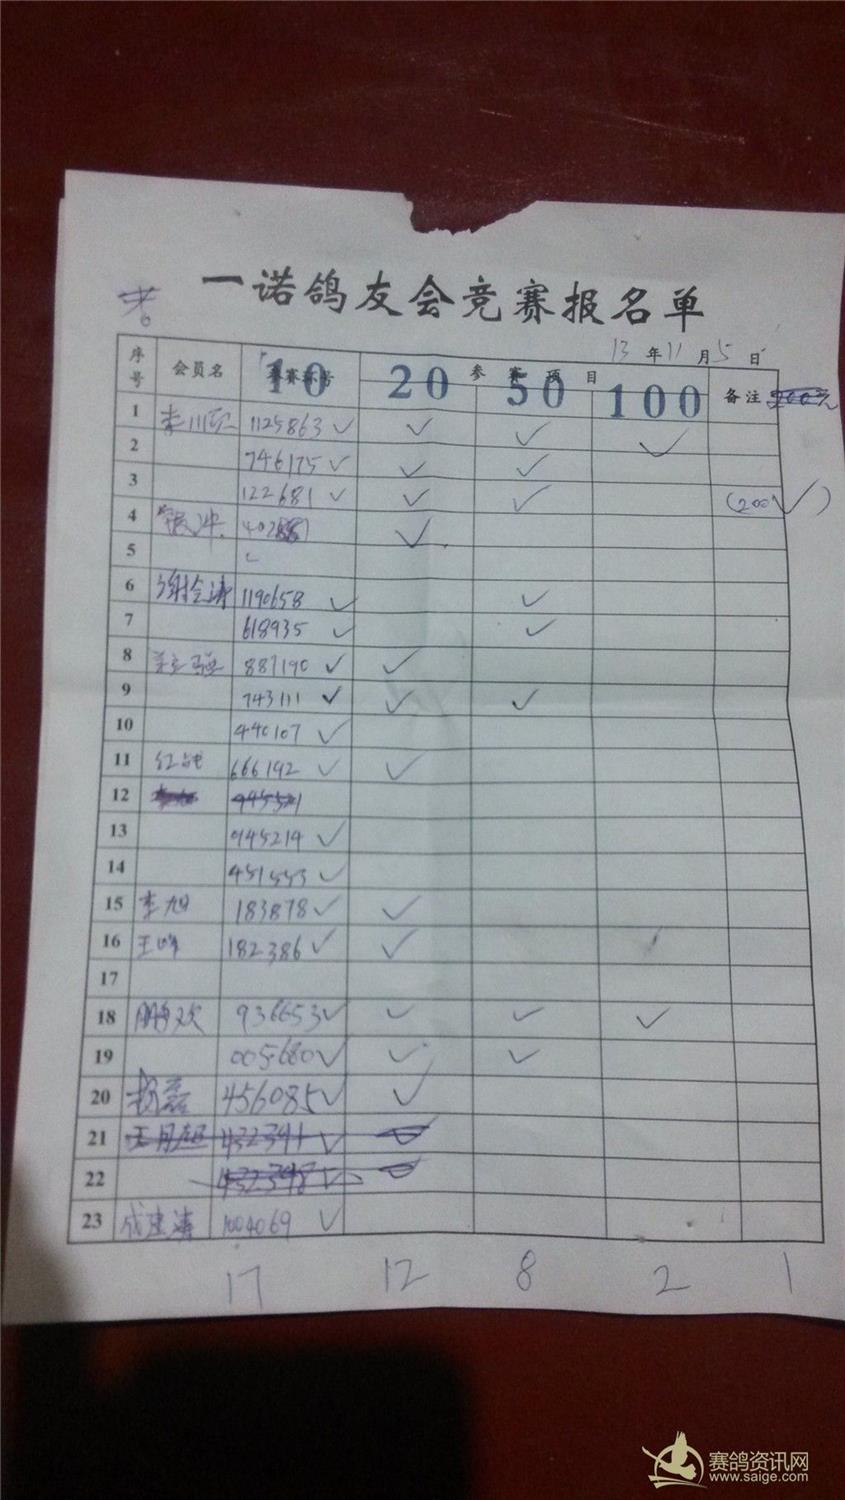 一诺鸽友会竞赛报名单
13年11月5日
序号 会员名 10 参赛项目 20 50 100 备注
1 李川 1125863 ✓ ✓ ✓ ✓
2 746175 ✓ ✓ ✓
3 122681 ✓ ✓ ✓ (200✓)
4 ✓
5
6 谢会涛 1190658 ✓ ✓
7 618935 ✓ ✓
8 887190 ✓ ✓
9 743111 ✓ ✓ ✓
10 440107 ✓
11 666192 ✓ ✓
12
13 945214 ✓
14 451553 ✓
15 李旭 183878 ✓ ✓
16 王峰 182386 ✓ ✓
17
18 鹏欢 936653 ✓ ✓ ✓ ✓
19 005680 ✓ ✓ ✓
20 杨磊 456085 ✓ ✓
21 王月超 432341 ✓ ✓
22 432348 ✓ ✓
23 成建涛 1004069 ✓
17 12 8 2 1
赛鸽资讯网
www.saige.com